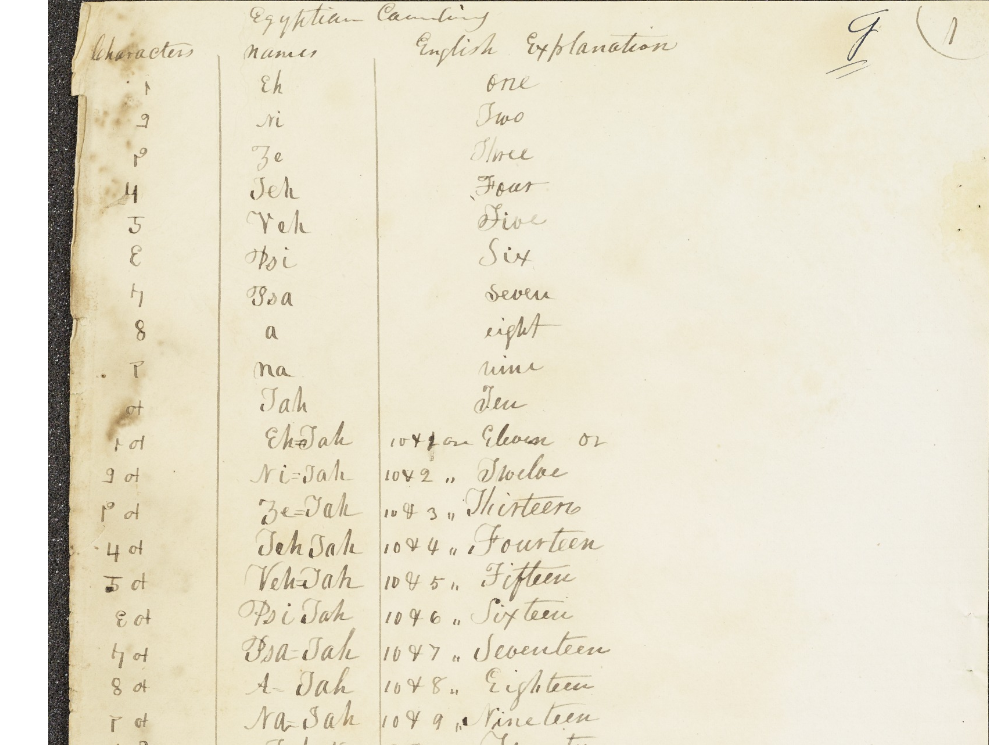 Egyptian Counting
Characters names English Explanation
g 1
Eh one
Ni Two
Ze Three
4 Teh Four
5 Veh Five
Psi Six
Psa seven
8 a eight
na nine
Tah Ten
Eh=Tah 10 & 1 or Eleven or
Ni=Tah 10 & 2 „ Twelve
Ze=Tah 10 & 3 „ Thirteen
4 Teh Tah 10 & 4 „ Fourteen
5 Veh=Tah 10 & 5 „ Fifteen
Psi Tah 10 & 6 „ Sixteen
Psa=Tah 10 & 7 „ Seventeen
8 A- Tah 10 & 8 „ Eighteen
Na=Tah 10 & 9 „ Nineteen